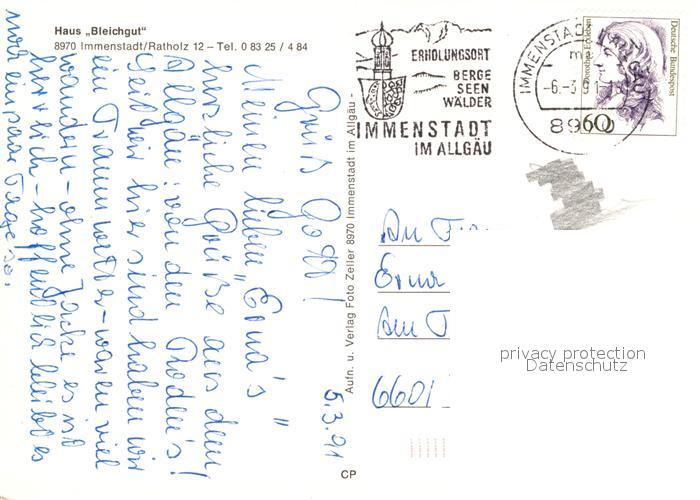 Haus „Bleichgut"
8970 Immenstadt/Ratholz 12 – Tel. 0 83 25 / 4 84
Grüß Gott!
5.3.91
Meinen lieben „Erna's"
herzliche Grüße aus dem
Allgäu von den Roden's!
Seit wir hier sind haben wir
ein Traumwetter – waren viel
wandern – ohne Jacke es ist
herrlich – hoffentlich bleibt es
noch ein paar Tage so.
Aufn. u. Verlag Foto Zeller 8970 Immenstadt im Allgäu -
CP
ERHOLUNGSORT
BERGE
SEEN
WÄLDER
IMMENSTADT
IM ALLGÄU
IMMENSTADT
-6.-3.91
8970
Deutsche Bundespost
Dorothea Erxleben
60
An
Erna
Am
6601
privacy protection
Datenschutz